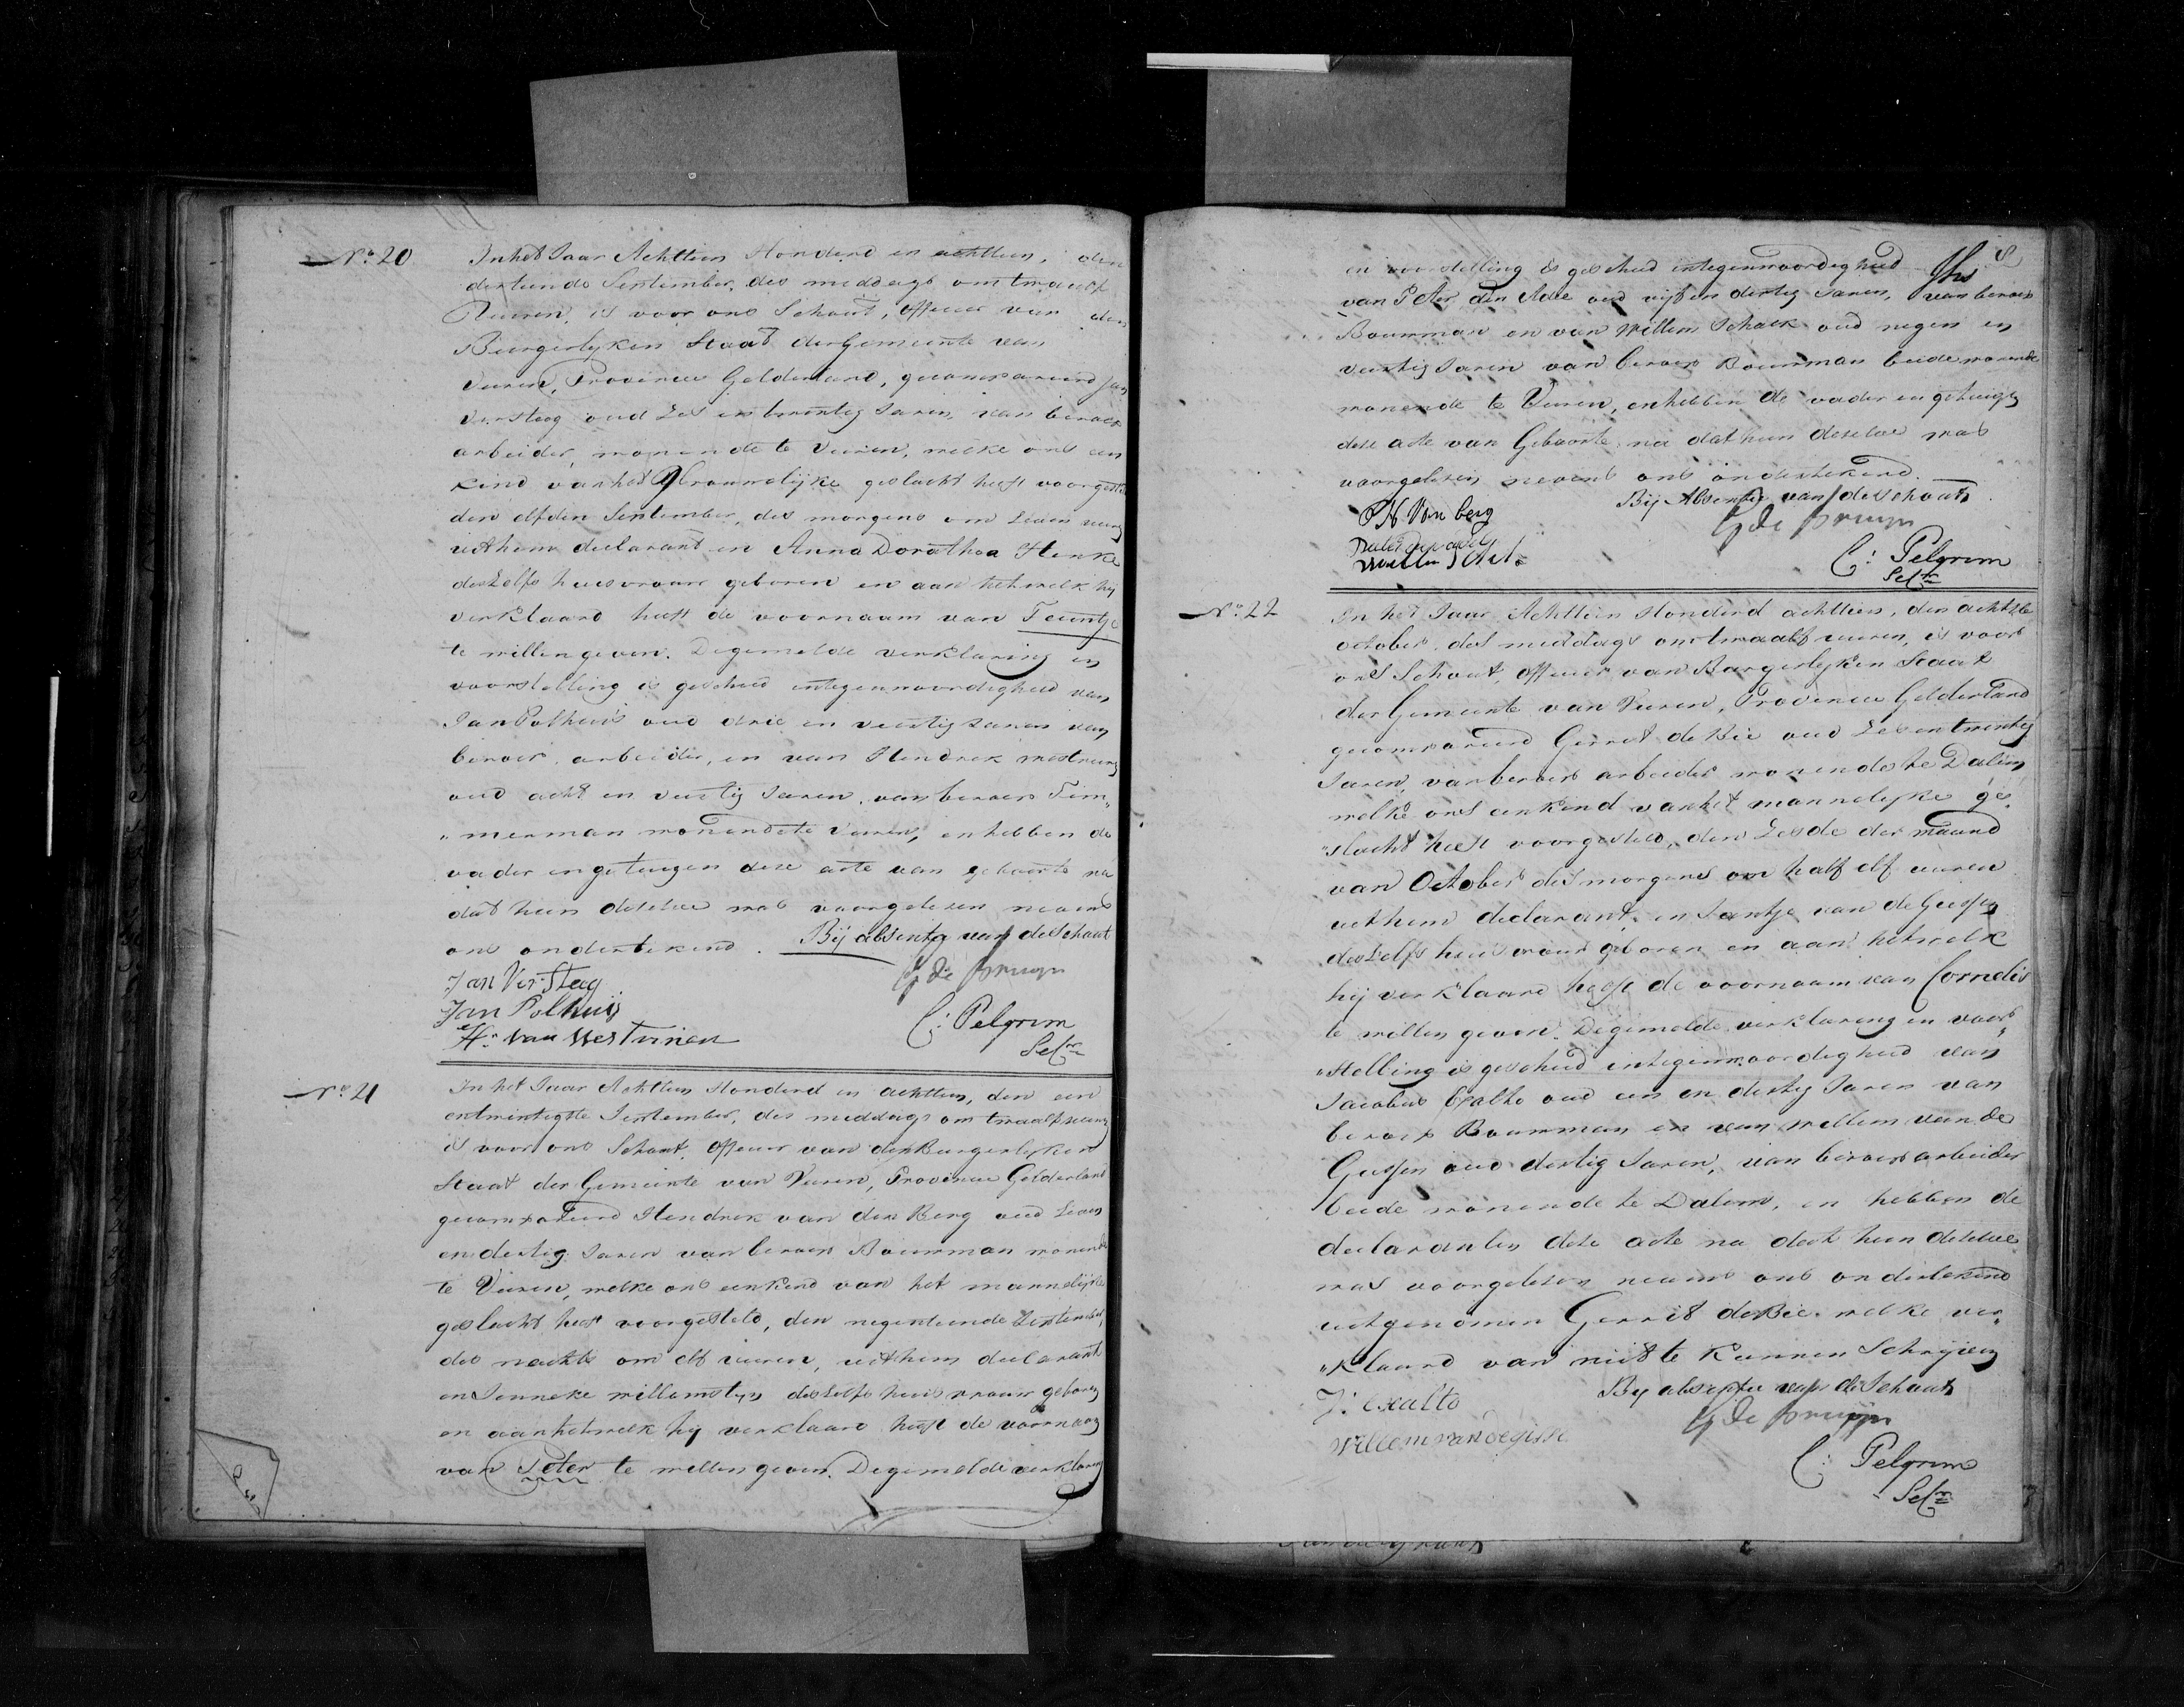 No. 20
In het Jaar Achttien Honderd en achttien, den
dertiende September, des middags om twaalf
Uuren, is voor ons Schout, Officier van den
Burgerlyken Staat der Gemeente van
Vuren, Provincie Gelderland, gecompareerd Jan
Versteeg oud Zes en twintig Jaren, van beroep
arbeider, wonende te Vuren, welke ons een
kind van het Vrouwelijke geslacht heeft voorgesteld
den elfden September, des morgens om Zeven uuren
uit hem declarant en Anna Dorathea Henke
deszelfs huisvrouw geboren en aan hetwelk hij
verklaard heeft de voornaam van Teuntje
te willen geven. Degemelde verklaring en
voorstelling is geschied integenwoordigheid van
Jan Polhuis oud drie en veertig Jaren van
beroep arbeider, en van Hendrik
oud acht en veertig Jaren, van beroep Tim„
„merman wonende te Vuren, en hebben de
vader en getuigen deze acte van geboorte na
dat hun dezelve was voorgelezen nevens
ons ondertekend. Bij absentie van de Schout
Jan Versteeg
G de Bruijn
Jan Polhuijs
C: Pelgrim
Hr van Westrinen
Secr
No. 21
In het Jaar Achttien Honderd en achttien, den een
entwintigste September, des middags om twaalf uuren
is voor ons Schout, Officier van den Burgerlyken
Staat der Gemeente van Vuren, Provincie Gelderland
gecompareerd Hendrik van den Berg oud Zeven
en dertig Jaren van beroep Bouwman wonende
te Vuren, welke ons een kind van het mannelijke
geslacht heeft voorgesteld, den negentiende September,
des nachts om elf uuren, uit hem declarant
en Jenneke Willemstyn deszelfs huisvrouw geboren
en aan hetwelk hij verklaard heeft de voornaam
van Peter te willen geven. Degemelde verklaring
en voorstelling is geschied integenwoordigheid
van Peter den Adel oud vijf en dertig Jaren, van beroep
Bouwman en van Willem Schalk oud negen en
veertig Jaren van beroep Bouwman beide wonende
wonende te Vuren, en hebben de vader en getuigen
deze acte van Geboorte, na dat hun dezelve was
voorgelezen nevens ons ondertekend.
Bij Absentie van de Schout
H Van berg
G de Bruijn
Willem
C: Pelgrim
Secr
No. 22
In het Jaar Achttien Honderd achttien, den achtste
october, des middags om twaalf uuren, is voor
ons Schout, Officier van Burgerlyken Staat
der Gemeente van Vuren, Provincie Gelderland
gecompareerd Gerrit de Bie oud Zes en twintig
Jaren, van beroep arbeider wonende te Dalem
welke ons een kind van het mannelyke ge„
„slacht heeft voorgesteld, den Zesde der maand
van October des morgens om half elf uuren
uit hem declarant, en Jantje van de Giessen
deszelfs huisvrouw geboren en aan hetwelk
hij verklaard heeft de voornaam van Cornelis
te willen geven. Degemelde verklaring en voor„
„stelling is geschied integenwoordigheid van
Jacobus Exalto oud een en dertig Jaren van
beroep Bouwman en van Willem van de
Giessen oud dertig Jaren, van beroep arbeider
beide wonende te Dalem, en hebben de
declaranten deze acte na dat hun dezelve
was voorgelezen nevens ons ondertekend
uitgenomen Gerrit de Bie welke ver„
„klaard van niet te kunnen Schrijven
By absentie van de Schout
J: Exalto
G de Bruijn
Willem van de gisse
C: Pelgrim
Secr